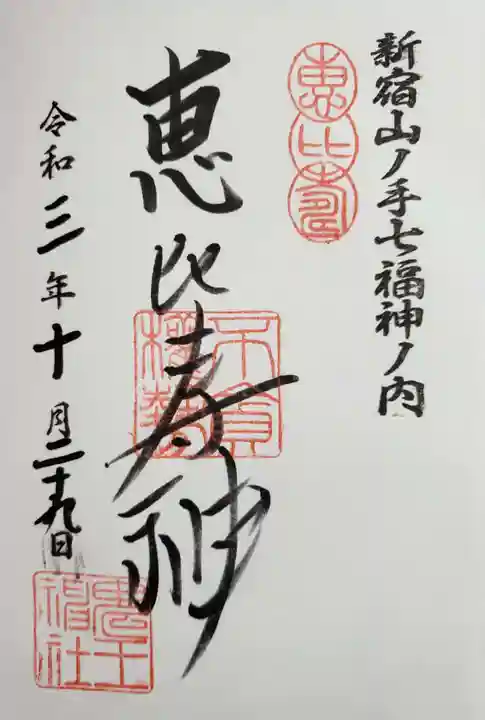 新宿山ノ手七福神ノ内
恵比寿
恵比寿神
令和三年十月二十九日
鬼王
神社